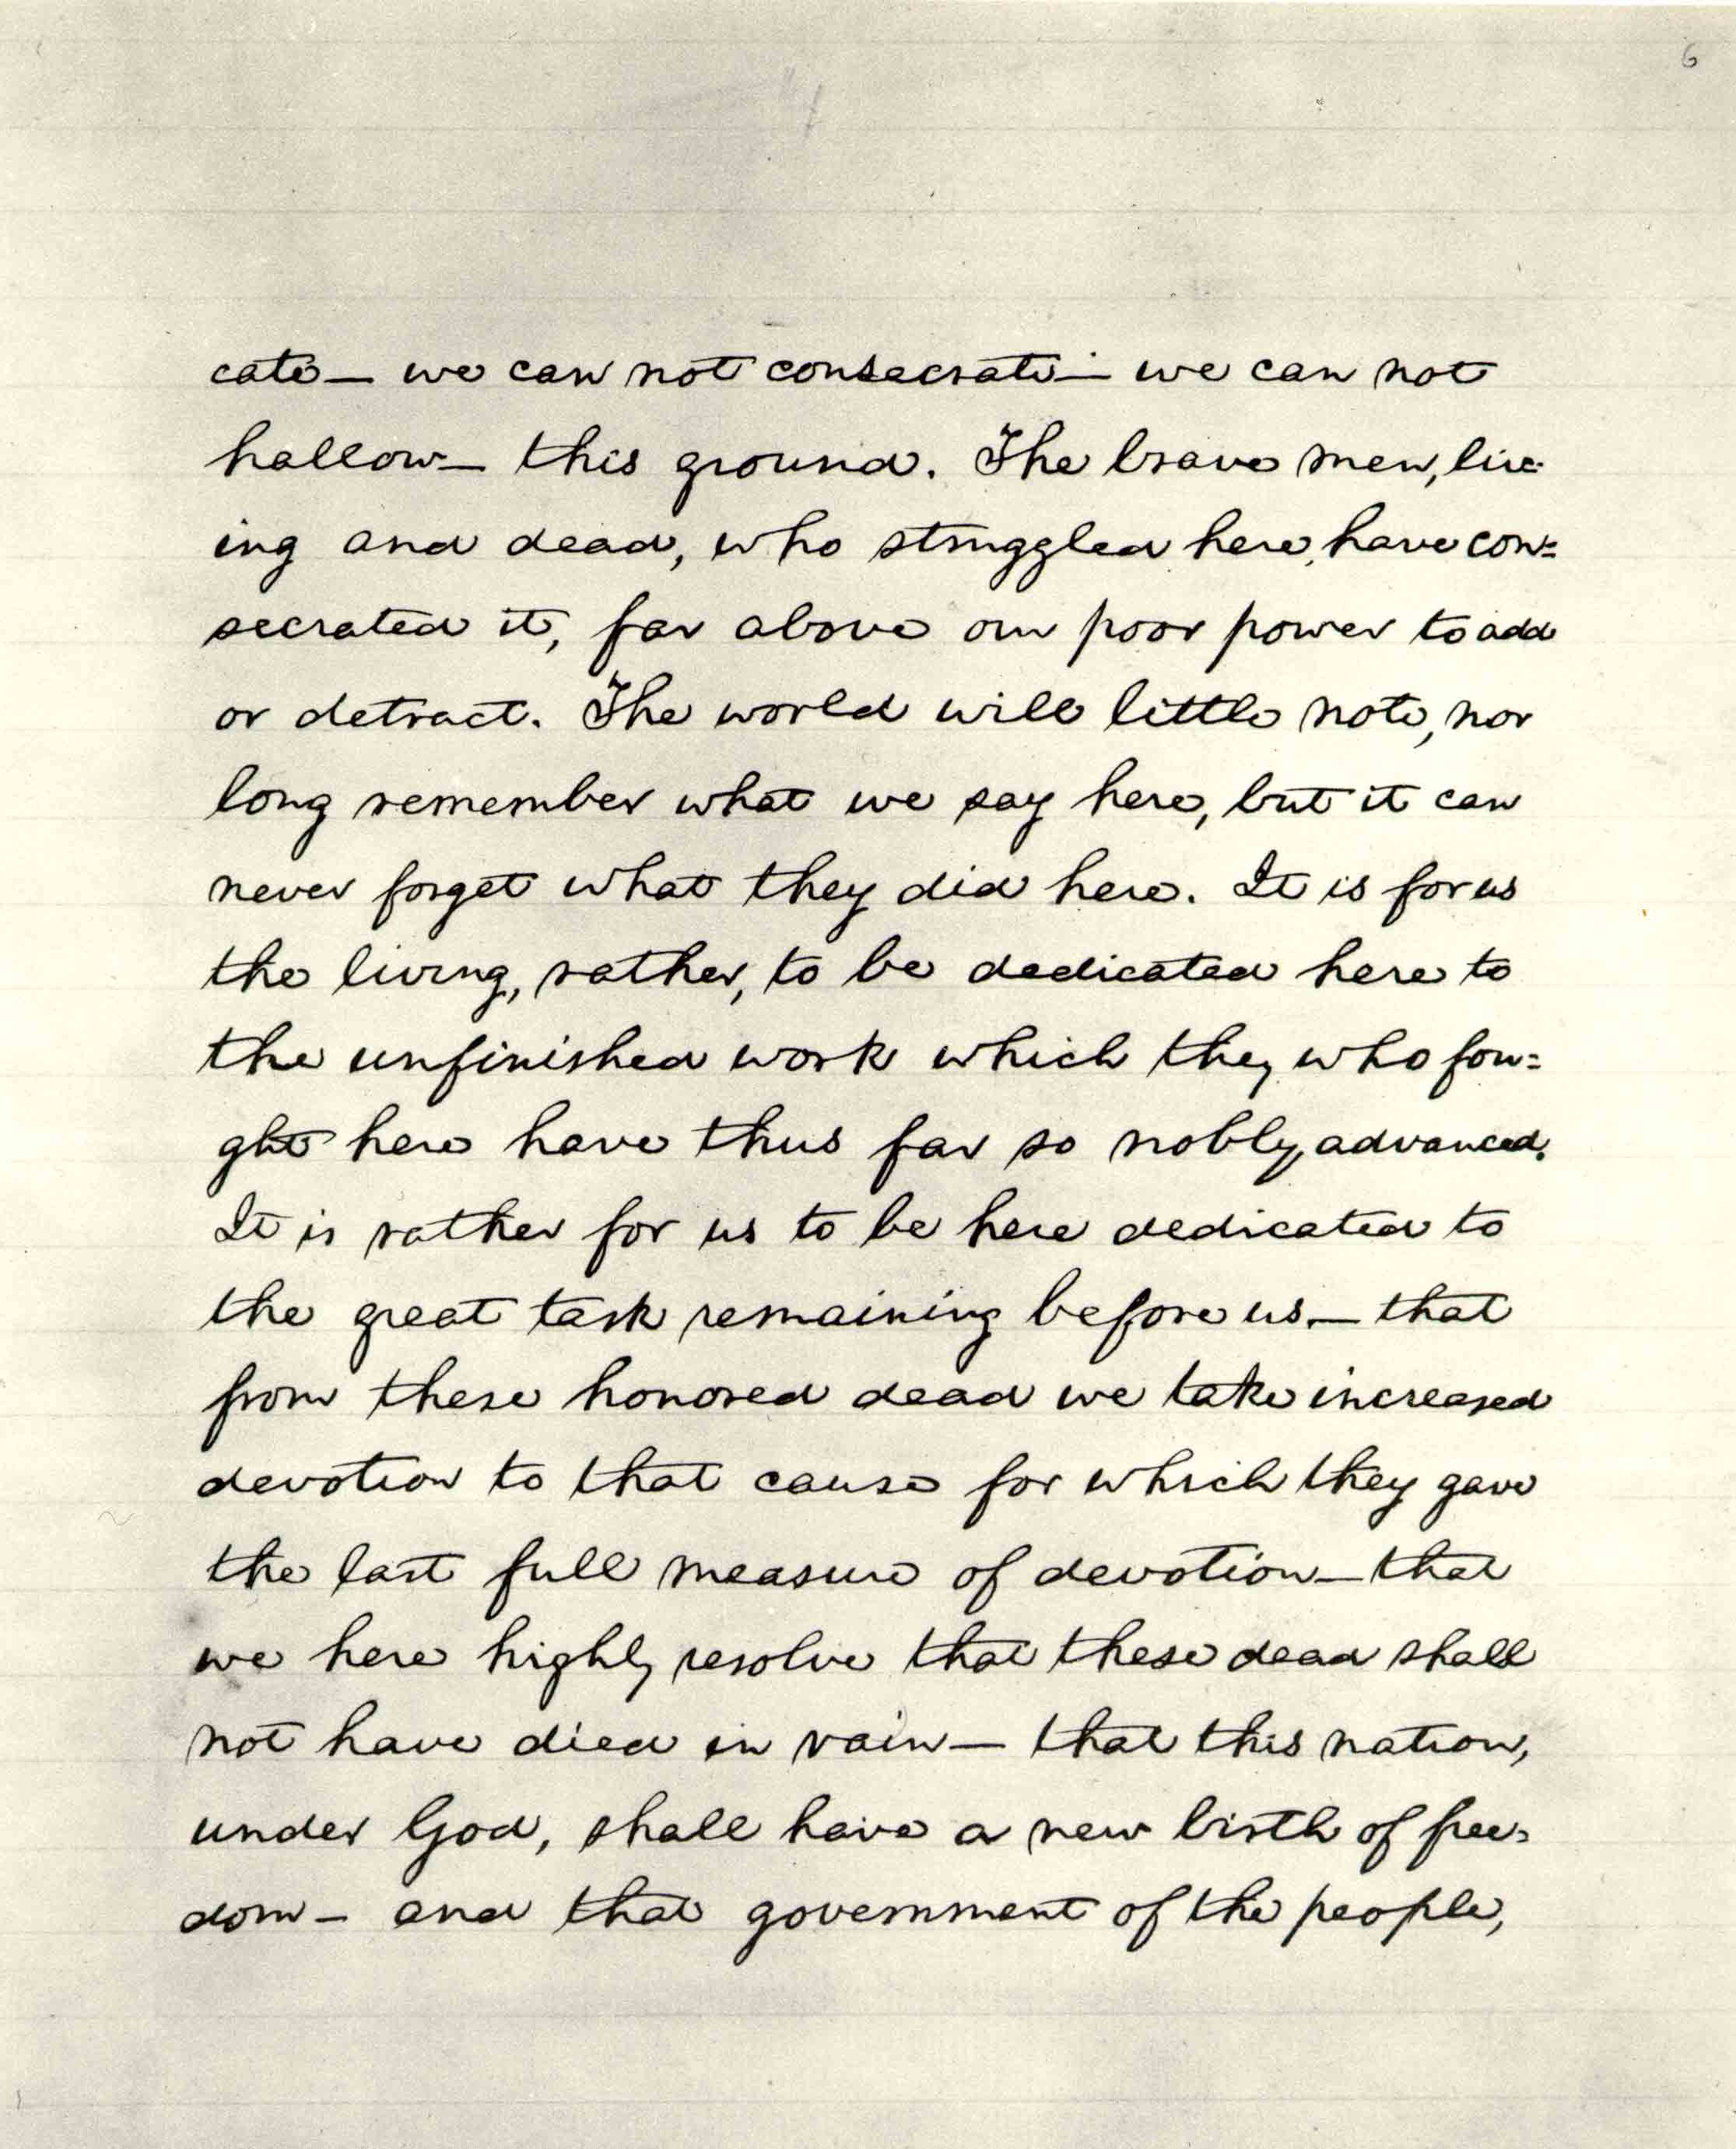 6
cate — we can not consecrate — we can not
hallow — this ground. The brave men, liv-
ing and dead, who struggled here, have con=
secrated it, far above our poor power to add
or detract. The world will little note, nor
long remember what we say here, but it can
never forget what they did here. It is for us
the living, rather, to be dedicated here to
the unfinished work which they who fou=
ght here have thus far so nobly advanced.
It is rather for us to be here dedicated to
the great task remaining before us — that
from these honored dead we take increased
devotion to that cause for which they gave
the last full measure of devotion — that
we here highly resolve that these dead shall
not have died in vain — that this nation,
under God, shall have a new birth of free=
dom — and that government of the people,